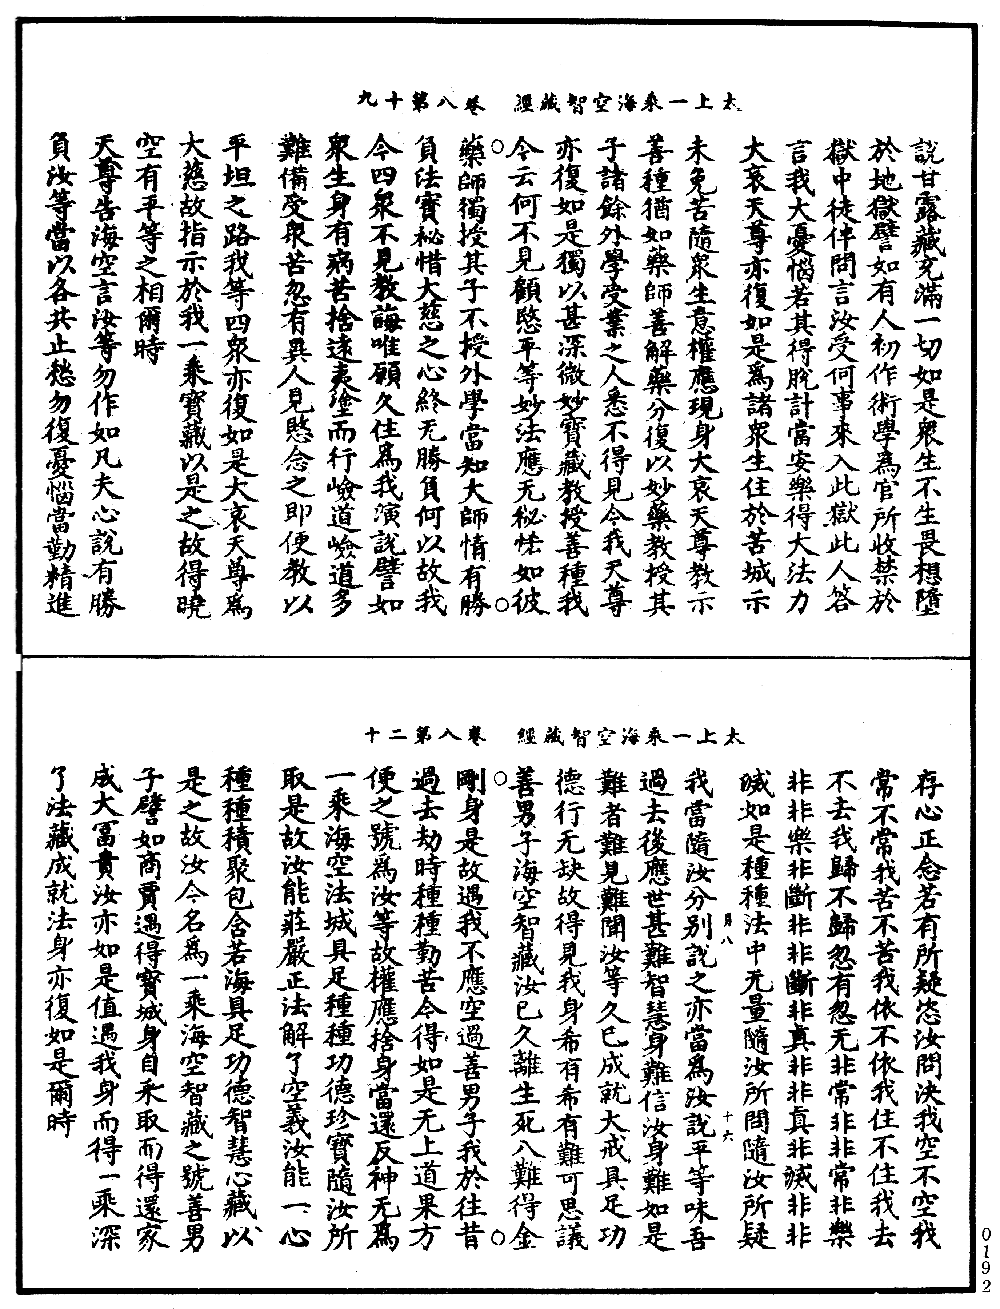 太上一乘海空智藏經　卷八第十九
說甘露藏充滿一切如是衆生不生畏想墮
於地獄譬如有人初作術學爲官所收禁於
獄中徒伴問言汝受何事來入此獄此人答
言我大憂惱若其得脫計當安樂得大法力
大哀天尊亦復如是爲諸衆生住於苦城示
未免苦隨衆生意權應現身大哀天尊教示
善種猶如藥師善解藥分復以妙藥教授其
子諸餘外學受業之人悉不得見今我天尊
亦復如是獨以甚深微妙寶藏教授善種我
今云何不見顧愍平等妙法應无秘恡如彼
藥師獨授其子不授外學當知大師情有勝
負法寶秘惜大慈之心終无勝負何以故我
今四衆不見教誨唯願久住爲我演說譬如
衆生身有病苦捨遠夷塗而行嶮道嶮道多
難備受衆苦忽有異人見愍念之即便教以
平坦之路我等四衆亦復如是大哀天尊爲
大慈故指示於我一乘寶藏以是之故得曉
空有平等之相爾時
天尊告海空言汝等勿作如凡夫心說有勝
負汝等當以各共止愁勿復憂惱當勤精進
太上一乘海空智藏經　卷八第二十
存心正念若有所疑恣汝問決我空不空我
常不常我苦不苦我依不依我住不住我去
不去我歸不歸忽有忽无非常非非常非樂
非非樂非斷非非斷非真非非真非滅非非
滅如是種種法中无量隨汝所問隨汝所疑
月八　十六
我當隨汝分別說之亦當爲汝說平等味吾
過去後應世甚難智慧身難信汝身難如是
難者難見難聞汝等久已成就大戒具足功
德行无缺故得見我身希有希有難可思議
善男子海空智藏汝已久離生死八難得金
剛身是故遇我不應空過善男子我於往昔
過去劫時種種勤苦今得如是无上道果方
便之號爲汝等故權應捨身當還反神无爲
一乘海空法城具足種種功德珍寶隨汝所
取是故汝能莊嚴正法解了空義汝能一心
種種積聚包含若海具足功德智慧心藏以
是之故汝今名爲一乘海空智藏之號善男
子譬如商賈遇得寶城身自采取而得還家
成大冨貴汝亦如是值遇我身而得一乘深
了法藏成就法身亦復如是爾時
0192